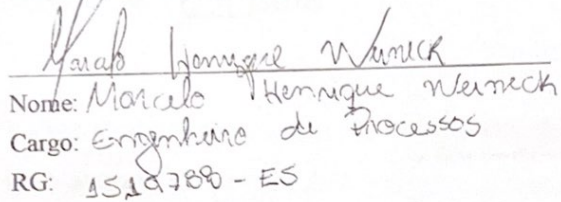 Marcelo Henrique Werneck
Nome: Marcelo Henrique Werneck
Cargo: Engenheiro de Processos
RG: - ES